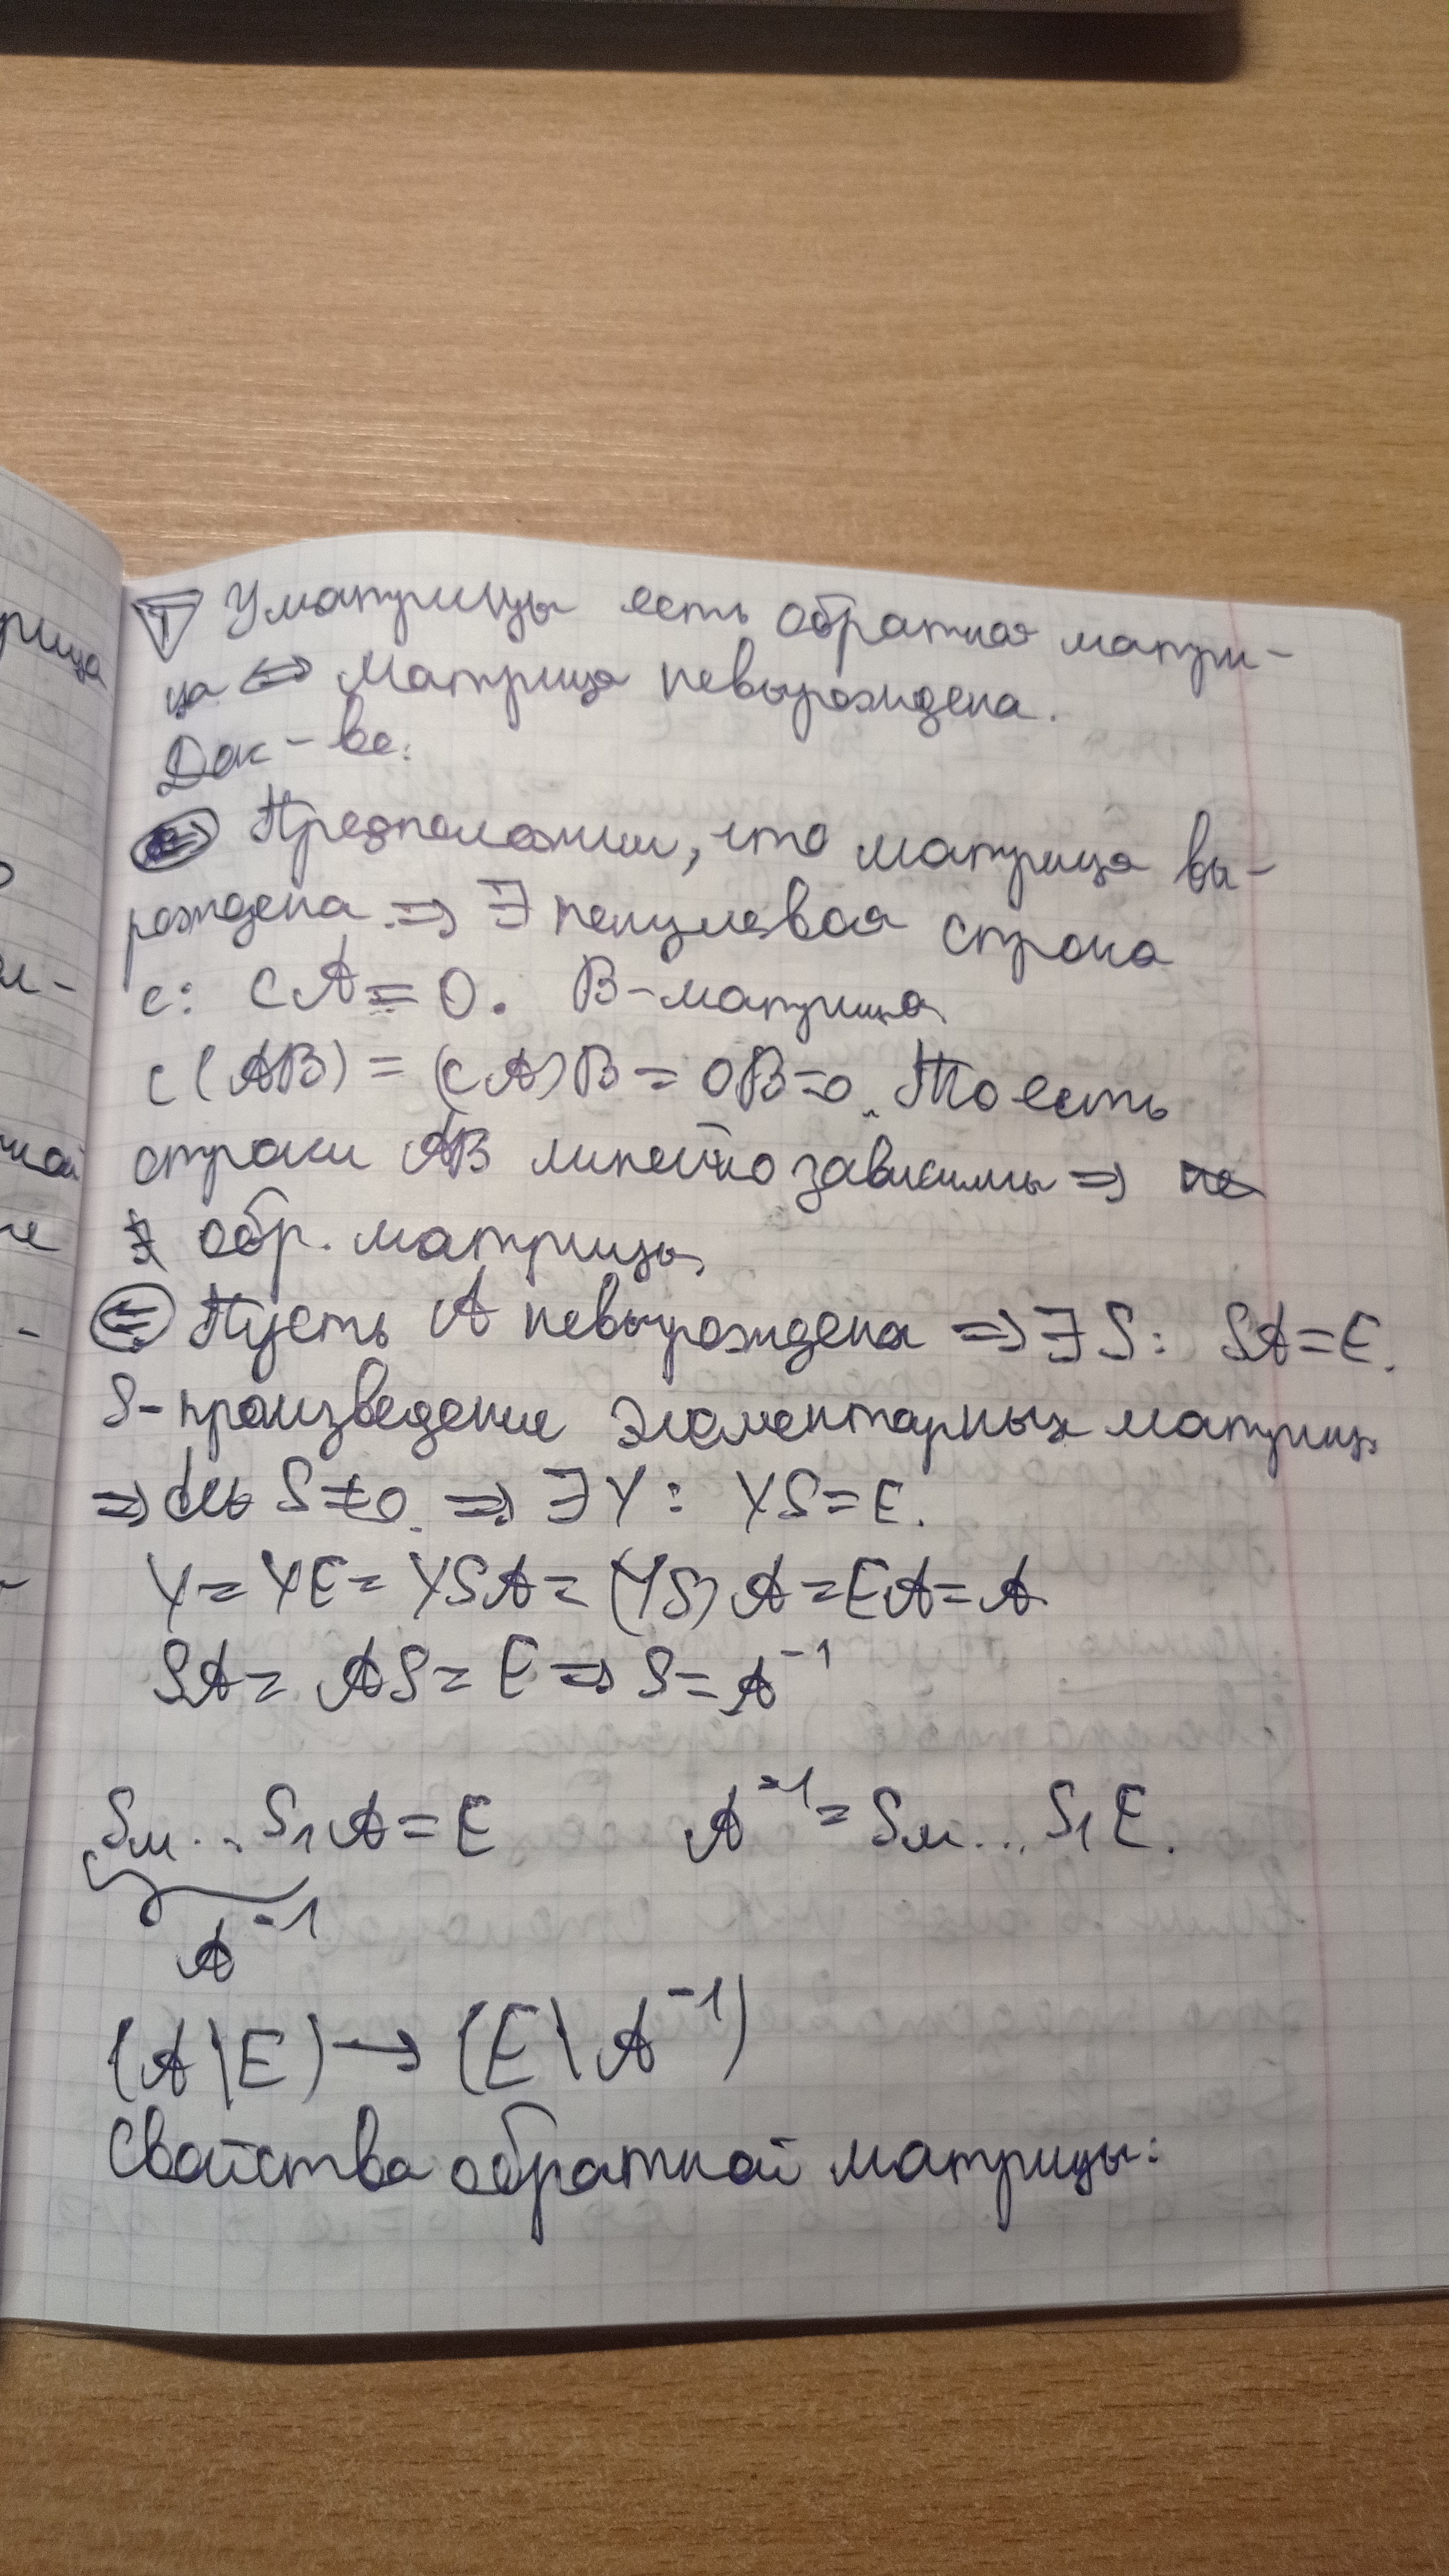 Т У матрицы есть обратная матри-
ца ⇔ матрица невырождена.
Док-во:
⇒ Предположим, что матрица вы-
рождена ⇒ ∃ ненулевая строка
с: cA = 0. B-матрица
c(AB) = (cA)B = 0B=0. То есть
строки AB линейно зависимы ⇒ не
∄ обр. матрицы.
⇐ Пусть A невырождена ⇒ ∃ S: SA=E.
S-произведение элементарных матриц
⇒ det S≠0. ⇒ ∃ Y: YS=E.
Y = YE = YSA = (YS)A = EA = A
SA = AS = E ⇒ S = A⁻¹
Sм... S₁A = E A⁻¹ = Sм... S₁E.
A⁻¹
(A|E) → (E|A⁻¹)
Свойства обратной матрицы:
рица
ной